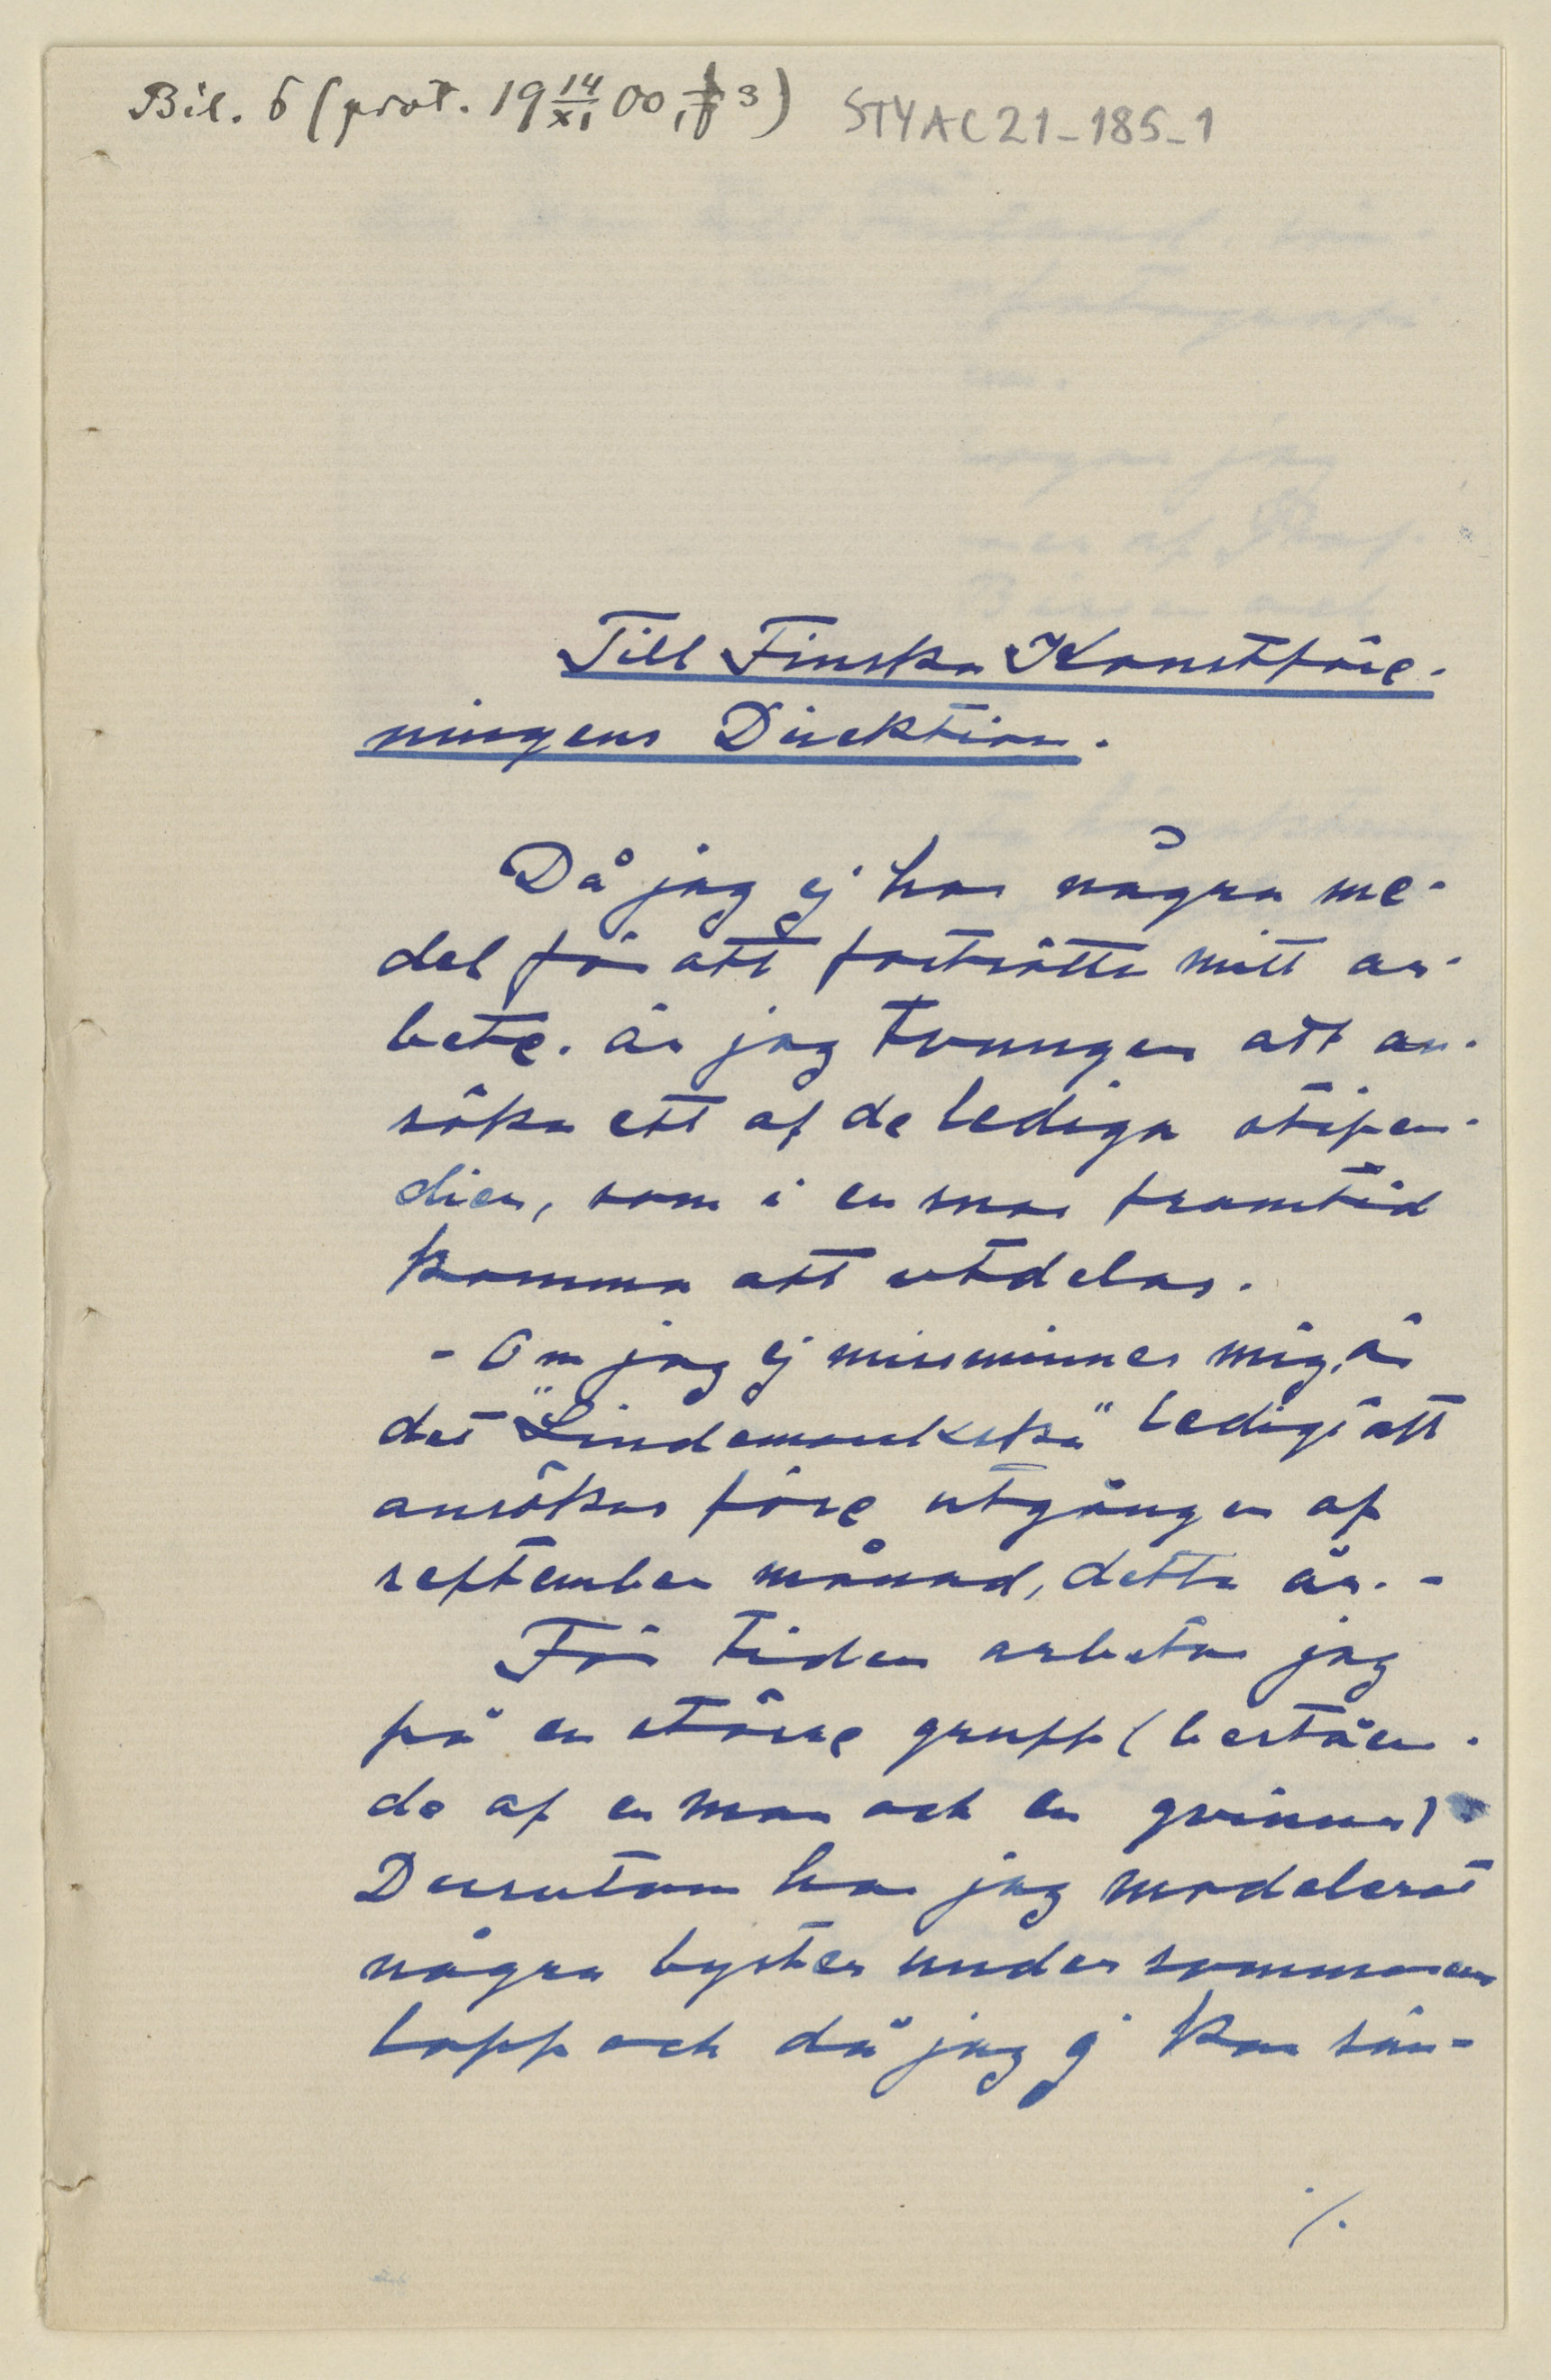 Bil. 6 (prot. 19 14/XI 00, § 3) STYAC21-185-1
Till Finska Konstföre-
ningens Direktion.
Då jag ej har några me-
del för att fortsätta mitt ar-
bete. är jag tvungen att an-
söka ett af de lediga stipen-
dier, som i en snar framtid
komma att utdelas.
- Om jag ej missminner mig, är
det "Lindemanska" ledigt att
ansökas före utgången af
september månad, detta år. -
För tiden arbetar jag
på en större grupp (beståen-
de af en man och en qvinna)
Dessutom har jag modelerat
några byster under sommarens
lopp och då jag ej kan sän-
./.